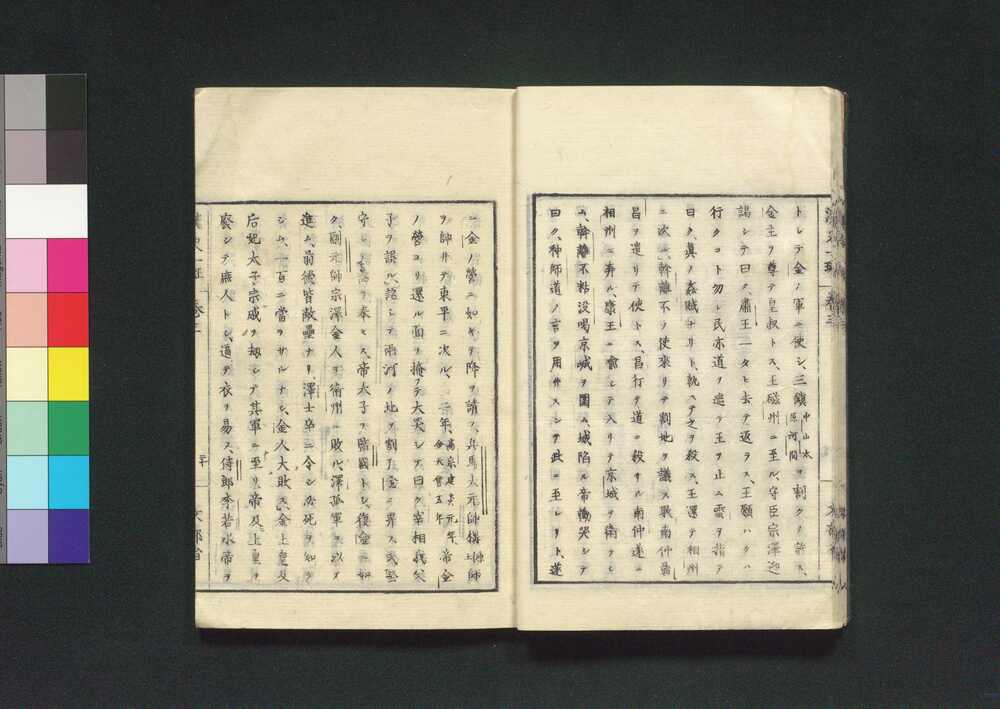 トシテ金ノ軍ニ使シ、三鎮中山太原河間ヲ割クヲ許ス、
金主ヲ尊テ皇叔トス、王磁州ニ至ル、守臣宗澤迎
謁シテ曰ク、肅王一タヒ去テ返ラス、王願ハクハ
行クコト勿レ民亦道ヲ遮テ王ヲ止ム雲ヲ指テ
曰ク、眞ノ姦賊ナリト、執ヘテ之ヲ殺ス、王還テ相州
ニ次ル、幹離不ノ使來リテ割地ヲ議ス耿南仲聶
昌ヲ遣リテ使トス、昌行テ道ニ殺サル南仲遂ニ
相州ニ奔ル、康王ニ會シテ入リテ京城ヲ衛ラシ
ム、幹離不粘没喝京城ヲ圍ム、城陷ル帝慟哭シテ
曰ク、种師道ノ言ヲ用ヰスシテ此ニ至レリト、遂
ニ金ノ營ニ如キテ降ヲ請フ、兵馬大元帥構康王師
ヲ帥ヰテ東平ニ次ル、二年、高宗建炎元年、金天會五年帝金
ノ營ヨリ還ル面ヲ掩フテ大哭シテ曰ク宰相我父
子ヲ誤ル、詔シテ兩河ノ地ヲ割テ金ニ畀ス民堅
守シテ詔ヲ奉セス、帝太子ヲ監國トシ、復金ニ如
ク、副元帥宗澤金人ヲ衛州ニ敗ル、澤孤軍ヲ以テ
進ム、前後皆敵壘ナリ、澤士卒ニ令シ必死ヲ知ラ
シム、一百ニ當ラサルナシ、金人大敗ス、金上皇及
后妃太子宗戚ヲ劫シテ其軍ニ至リ帝及上皇ヲ
廢シテ庶人トシ、逼テ衣ヲ易ス、侍郎李若水帝ヲ
文部省